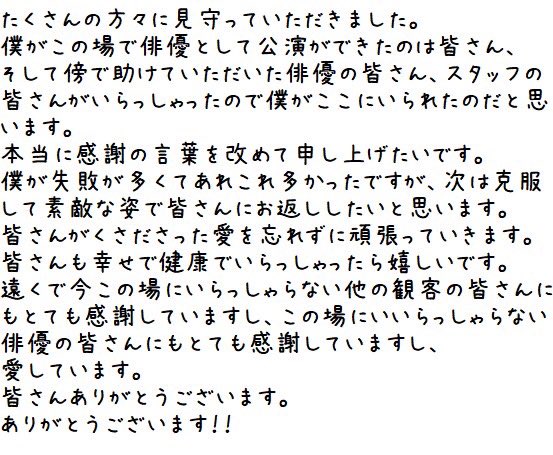 たくさんの方々に見守っていただきました。
僕がこの場で俳優として公演ができたのは皆さん、
そして傍で助けていただいた俳優の皆さん、スタッフの
皆さんがいらっしゃったので僕がここにいられたのだと思
います。
本当に感謝の言葉を改めて申し上げたいです。
僕が失敗が多くてあれこれ多かったですが、次は克服
して素敵な姿で皆さんにお返ししたいと思います。
皆さんがくさださった愛を忘れずに頑張っていきます。
皆さんも幸せで健康でいらっしゃったら嬉しいです。
遠くで今この場にいらっしゃらない他の観客の皆さんに
もとても感謝していますし、この場にいいらっしゃらない
俳優の皆さんにもとても感謝していますし、
愛しています。
皆さんありがとうございます。
ありがとうございます!!